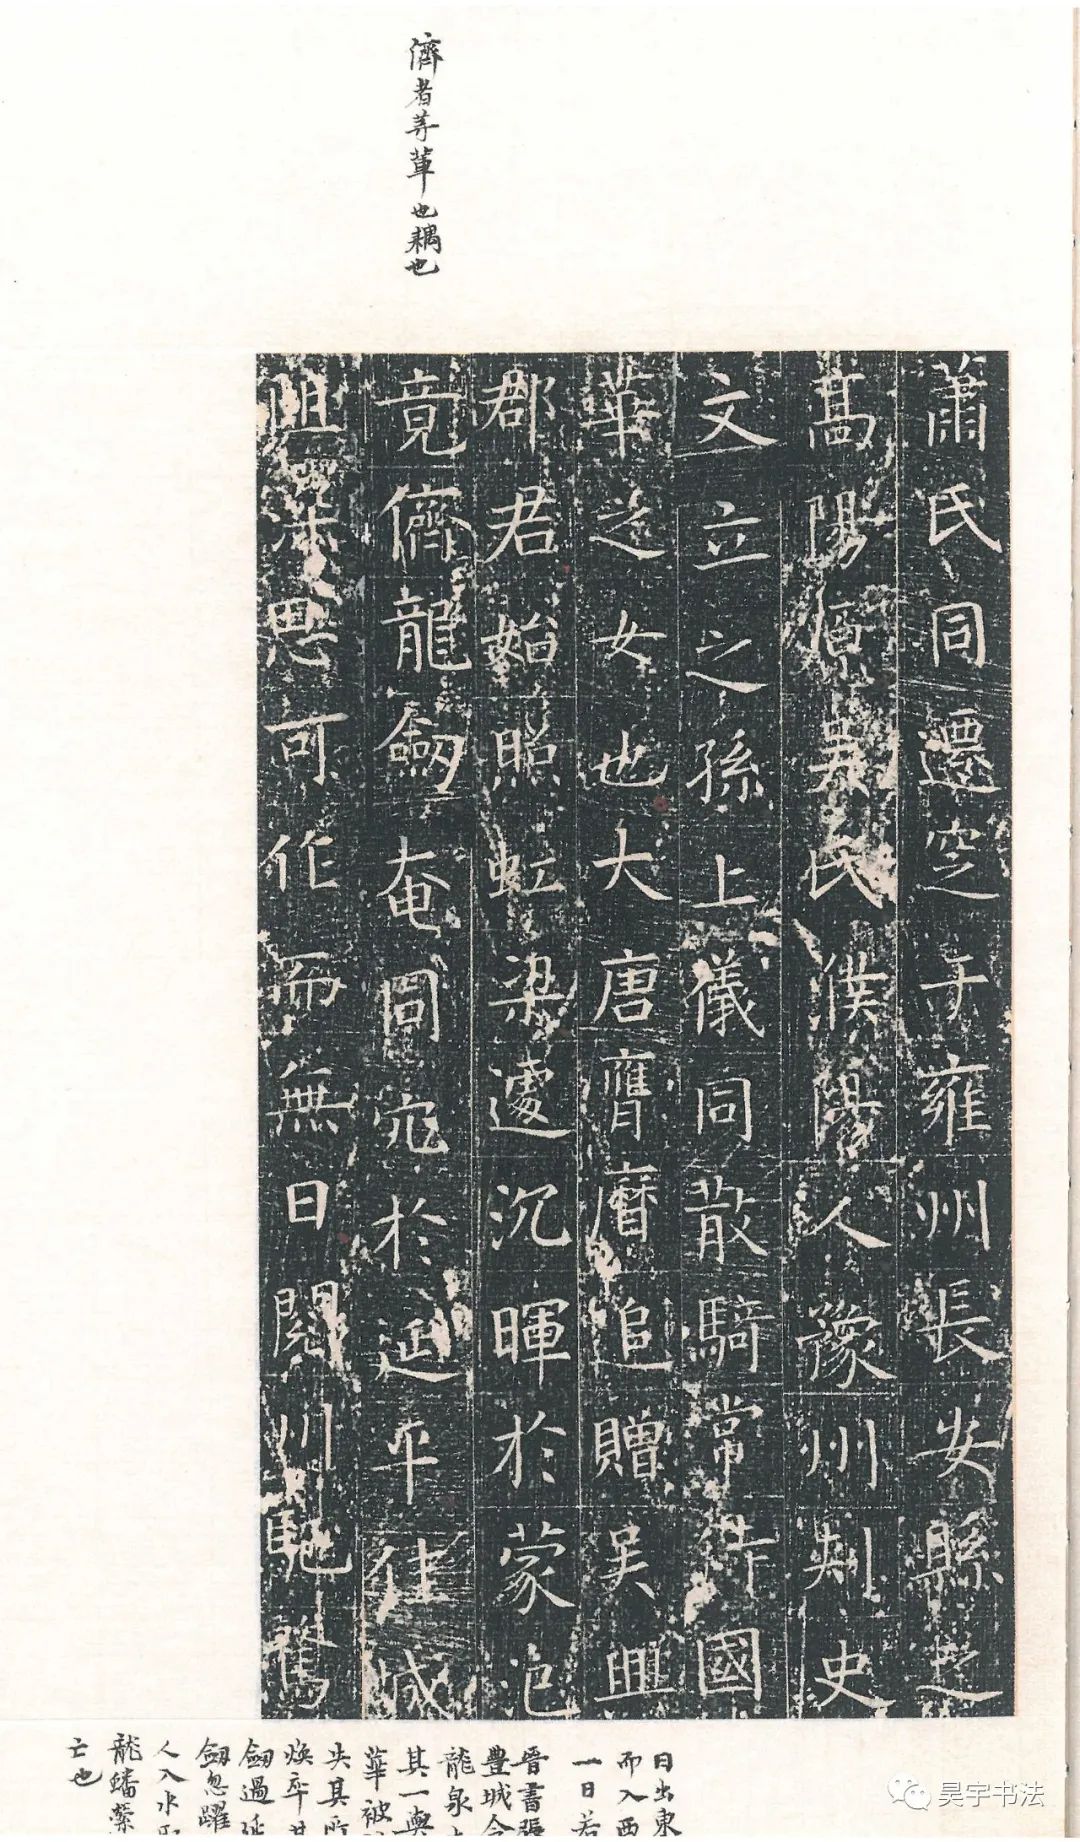 儕者等輩也耦也
蕭氏同遷窆于雍州長安縣之
高陽原君氏濮陽人豫州刺史
文立之孫上儀同散騎常侍國
華之女也大唐膺曆追贈吴興
郡君始照虹梁遽沉暉於蒙汜
竟儕龍劒奄同穴於延平往成
阻深思可作而無日閱川馳駕
日出東
而入西
一日若
晉書張
豐城令
龍泉
其一與
華被
失其所
煥卒其
劒過延
劒忽躍
人入水
龍蟠縈
亡也
昊宇书法